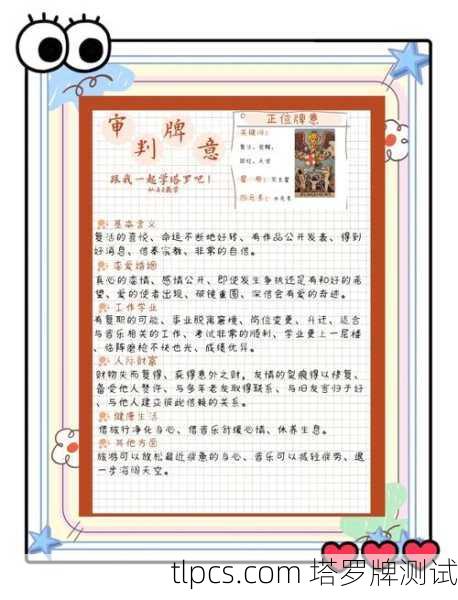 审判牌意
跟我一起学塔罗吧！
正位牌意
关键词：
复活、觉醒、
星
冥王星
四元素：
基本含义
复活的喜悦、命运不断地好转、有作品公开发表、得到
好消息、信奉宗教、非常的自信。
恋爱婚姻
真心的恋情、感情公开、即使发生争执还是有和好的希
望、爱的使者出现、破镜重圆、深信会有爱的奇迹。
工作学业
有复职的可能、事业脱离窘境、岗位变更、升迁、适合
与音乐相关的工作、考试非常的顺利、学业更上一层楼
、临阵磨枪不快也光、成绩优异。
人际财富
财物失而复得、获得意外之财。友情的裂痕得以修复、
备受他人赞许、与多年老友取得联系、与旧友言归于好
、与他人建立彼此信赖的关系。
健康生活
借旅行净化身心、借音乐舒缓心情、休养生息。
其他方面
旅游可以放松最近疲惫的身心、音乐可以减轻疲劳、退
一步海阔天空。
tlpcs.com 塔罗牌测试